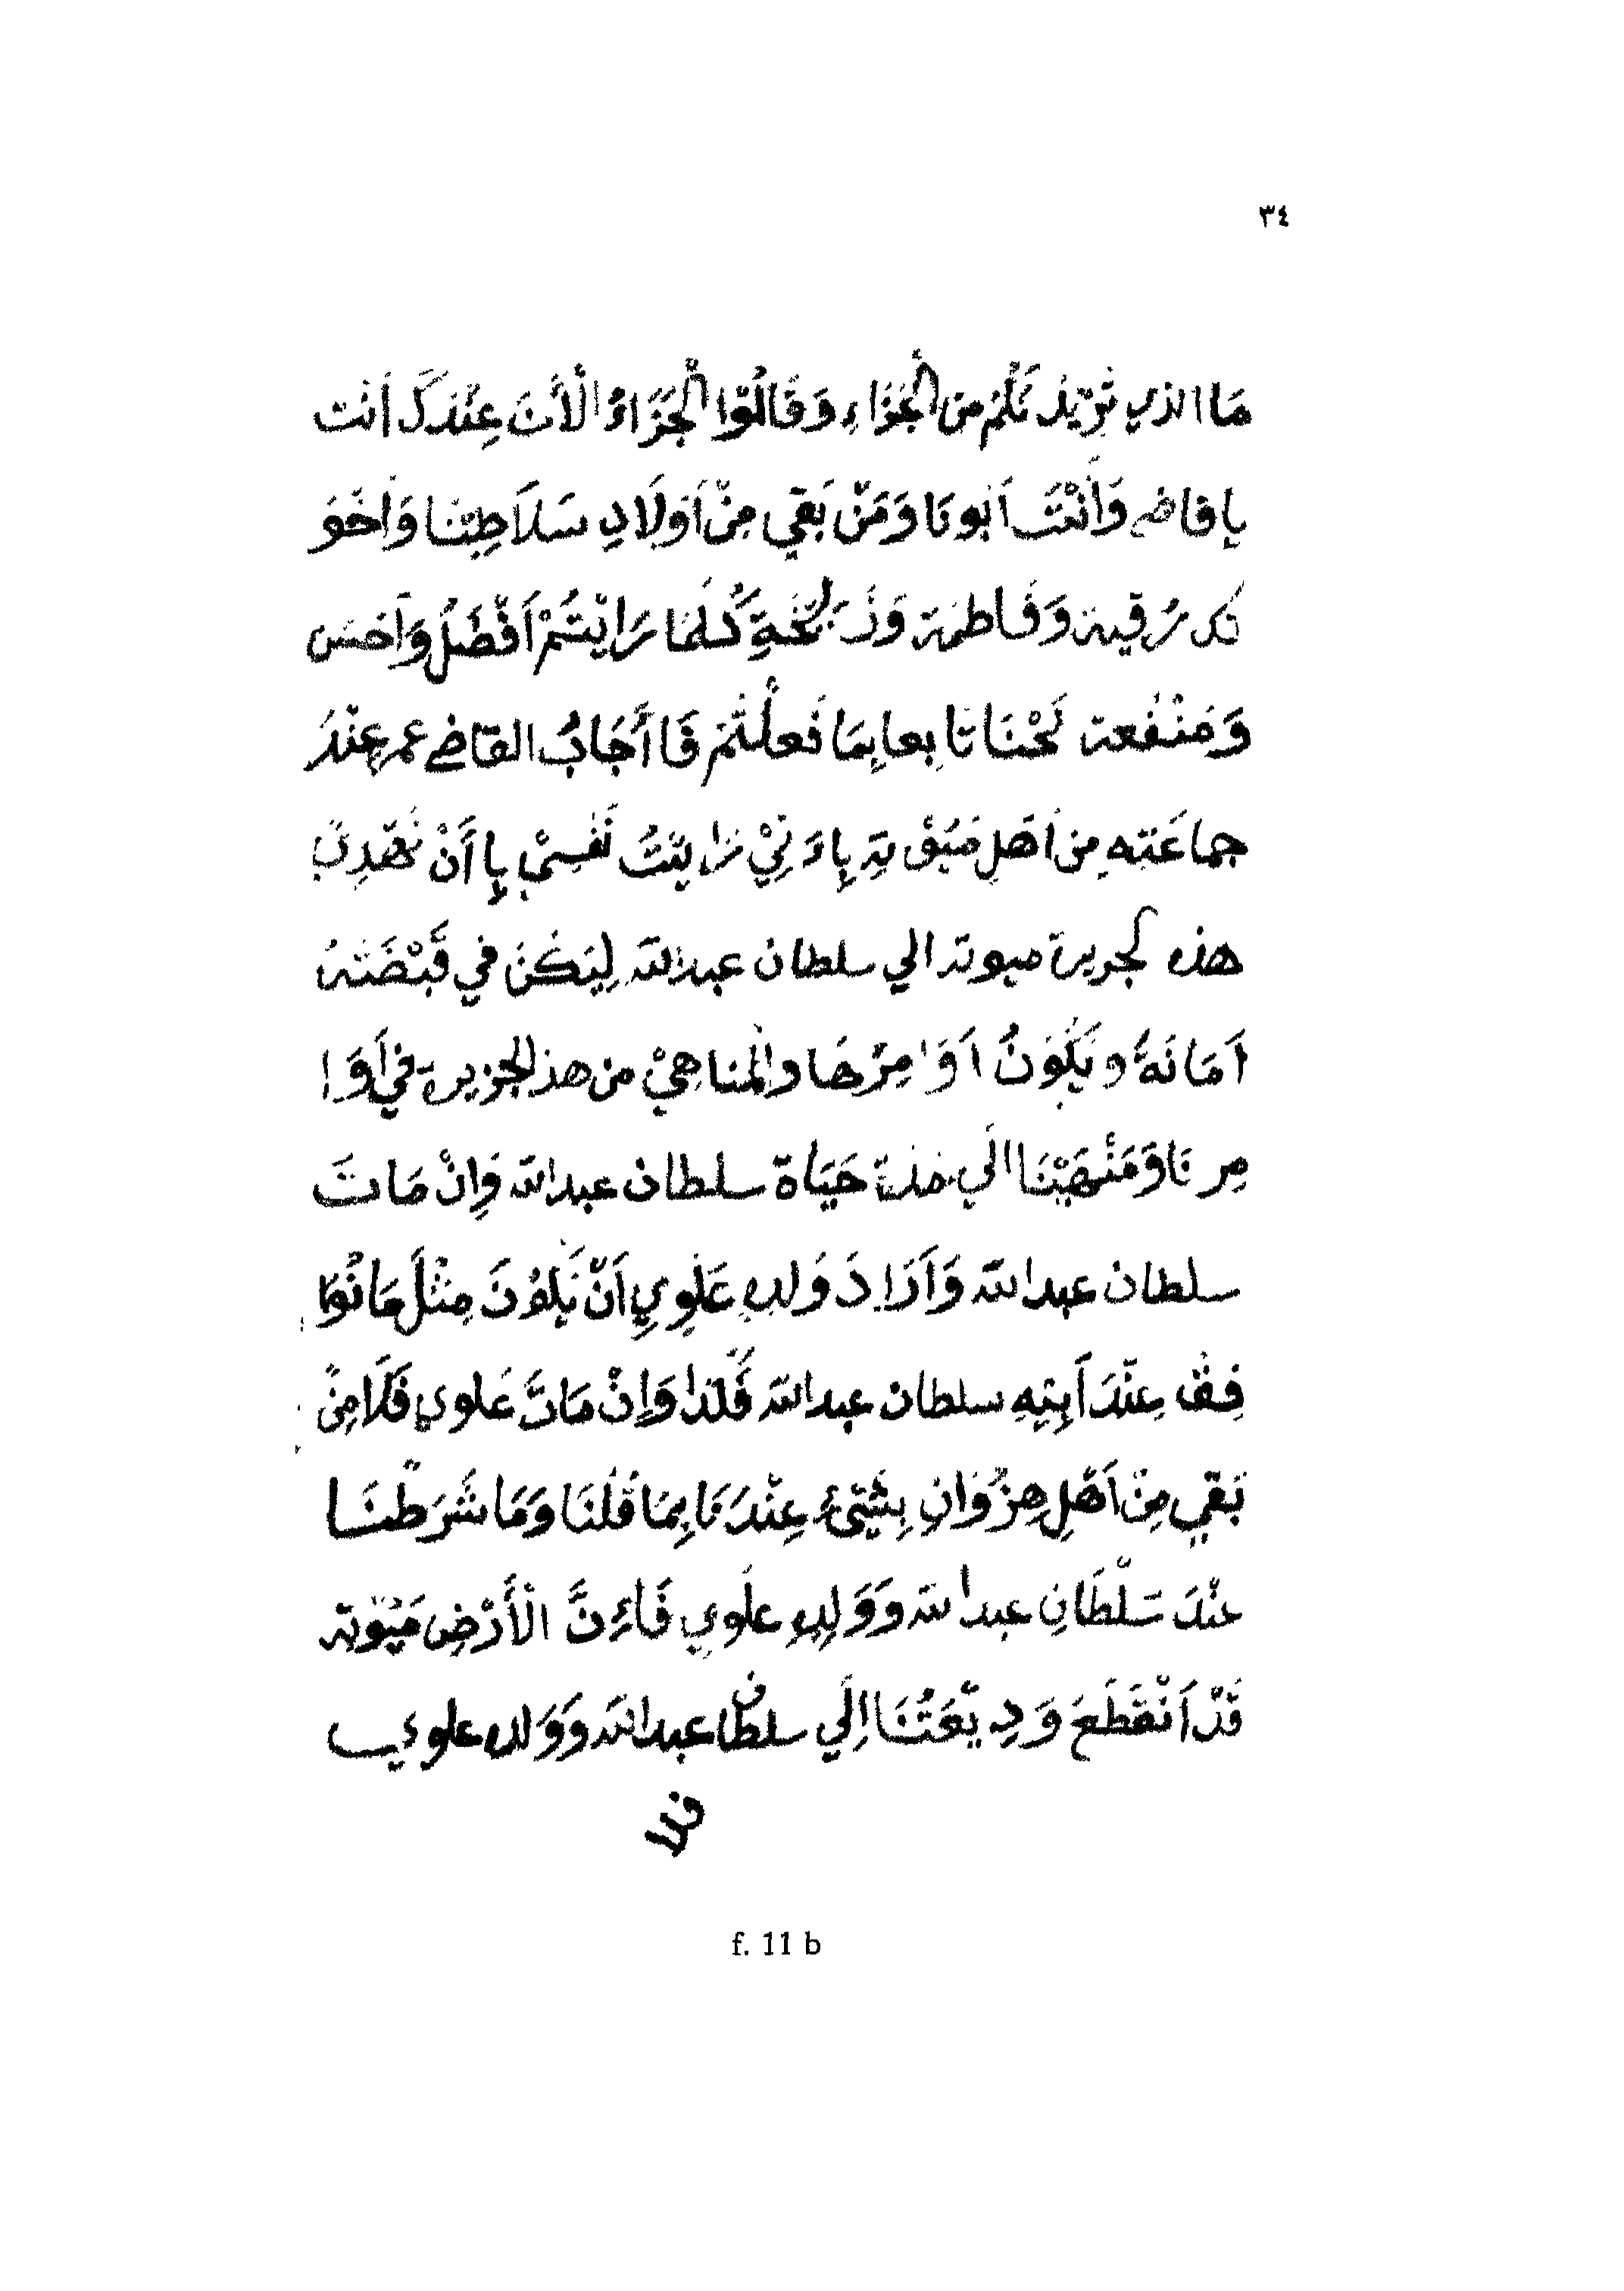 ٣٤
مَا الذي تُرِيْدُ نَلُمْ مِن الْجَزَاءِ وَقَالُوْا الْجَزَاءُ الْأَنَ عِنْدَكَ أَنْت
يا قاضي وَأَنْتَ اَبُونَا وَمَنْ بَقِي مِنْ اَوْلَادِ سَلَاطِيْنَا وَأَخَوَ
تك رُقية وَفَاطمة وَذُ كُلَمَا رَايْتُمْ اَفْضَلُ وَاَحْسَن
وَمَنْفَعة نَحْنَا تابِعا بِمَا فَعلْتُمْ فَاأَجَابُ القاضي عمر عِنْدَ
جماعَتِه مِن اَهْلِ مَيُوْتِة بِادَنِيْ رَايْتُ نَفْسِيْ بِاأَنْ نُهْدِىَ
هذه لجريرة ميوتة الي سلطان عبدالله لِيَكُنَ في قَبْضَتهُ
اَمَانَةُ وَيَكُوَنُ اَوَامِرُهَا والْمناهِيْ من هذ الجزيرة في اَوَا
مِرِنَا وَمَنْهَيْنَا الَي مدة حَيَاة سلطان عبدالله وَإِنْ مَاتَ
سلطان عبدالله وَاَرَادَ وَلدهِ عَلَوِي اَنْ يَكُوْنَ مِثْلَ مَا نُوَا
فِق عِنْدَ اَبِيْهِ سلطان عبدالله فَلَدا وَاِنْ مَاتَ عَلوي فَلَا مِنْ
بَقي مِنْ اَهْلِ هِنْزُوَانِ بِشَيْئٍ عِنْدَنَا بِمَا قُلْنَا وَمَا شَرَطْنَا
عنْدَ سَلْطَانِ عبدالله وَوَلِدهِ علَوي فَاءِنَّ الْأَرْضِ مَيُوتة
قَدْ اَنْقَطَعَ وَدِيْعَتُنَا اِلَي سلطان عبدالله وَوَلده علوي
فلدا
f. 11 b